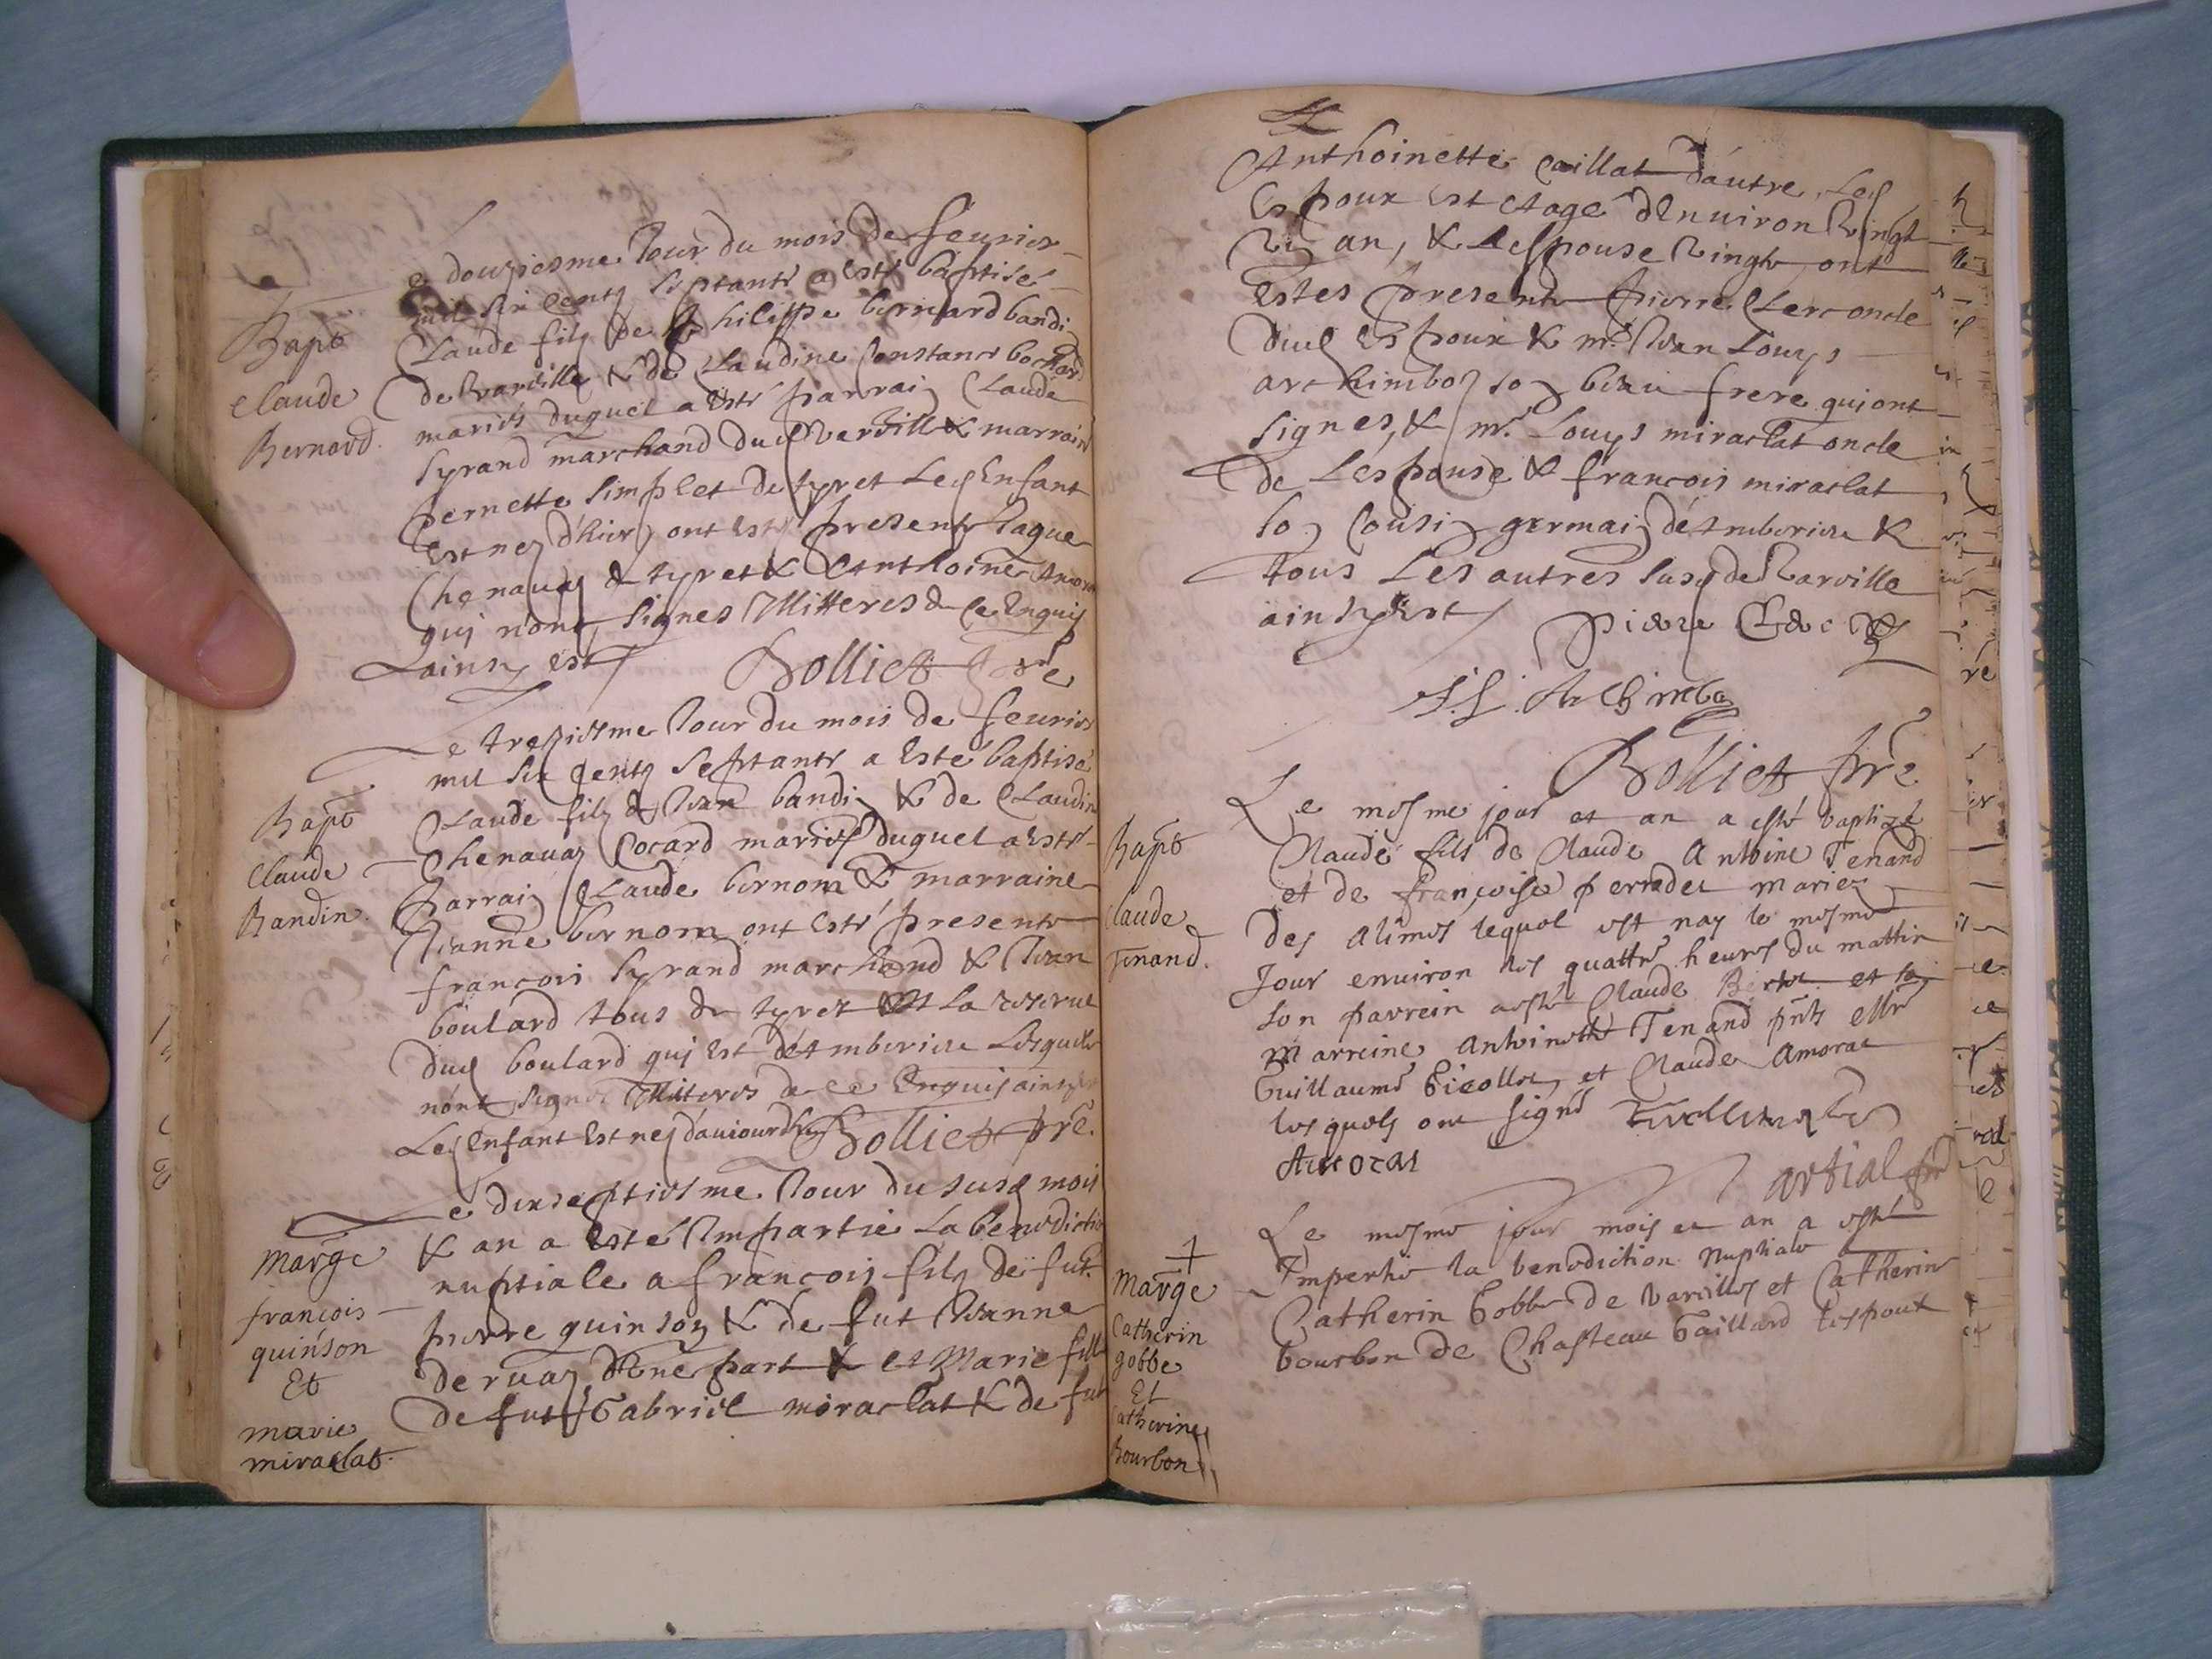 Bapt
Claude
Bernard.
Le douziesme Jour du mois de feurier
mil six centz septante a esté baptisé
Claude filz de philippe bernard bandi
de Varville & de Claudine Constance
mariés duquel a esté parrain Claude
syrand marchand dud Varville & marraine
pernette simplet de tyret Led Enfant
est nez d'hier ont esté presentz
Chenavaz de tyret & Anthoine
qui n'ont signes Illitteres de ce Enquis
& ainsy est Bolliet pre
Bapt
Claude
Bandin.
Le treziesme Jour du mois de feurier
mil six centz septante a esté baptisé
Claude filz de Jean bandin & de Claudine
Chenavaz Cocard mariés duquel a esté
parrain Claude bernom & marraine
Jeanne bernom ont esté presentz
francois syrand marchand & Jean
boulard tous de tyret la reserue
dud boulard qui est d'Amberieu Lesquelz
n'ont signé Illiteres de ce Enquis ainsy
Led Enfant est nez d'auiourdhuy Bolliet pre.
Marge
françois
quinson
Et
marie
miraclat.
Le dixseptiesme Jour du susd mois
& an a esté Impartie La benediction
nuptiale a françois filz de fut.
pierre quinson & de fut Jeanne
deruaz d'une part & et Marie fille
de fut Gabriel miraclat & de fut
Anthoinette Caillat d'autre, Led
Espoux est Aagé d'Enuiron Vingt
an, & Lespouse Vingt, ont
Estes presentz pierre Clerc oncle
dud Espoux & mr. Jean Louys
archimboz son beau frere qui ont
signes, & mr. Louys miraclat oncle
de L'espouse & francois miraclat
son Cousin germain d'Amberieu &
tous Les autres susd de Varville
ainsy est Pierre Clerc
J. L. Archimbo
Bolliet pre
Bapt
Claude
Tenand.
Le mesme jour et an a esté baptizé
Claude fils de Claude Antoine Tenand
et de françoise perradet mariez
des alimes lequel est nay le mesme
Jour enuiron les quattre heures du mattin
son parrein a esté Claude et sa
Marreine Antoinette Tenand pnts
Guillaume Gicollet, et Claude Amorac
lesquels ont signé
Amocas
Martial pre
+
Marge
Catherin
gobbe
Et
Catherine
Bourbon
Le mesme jour mois et an a esté
Impertie la benediction nuptiale a
Catherin Gobbe de Varvilles et Catherine
bourbon de Chasteau Gaillard lespoux